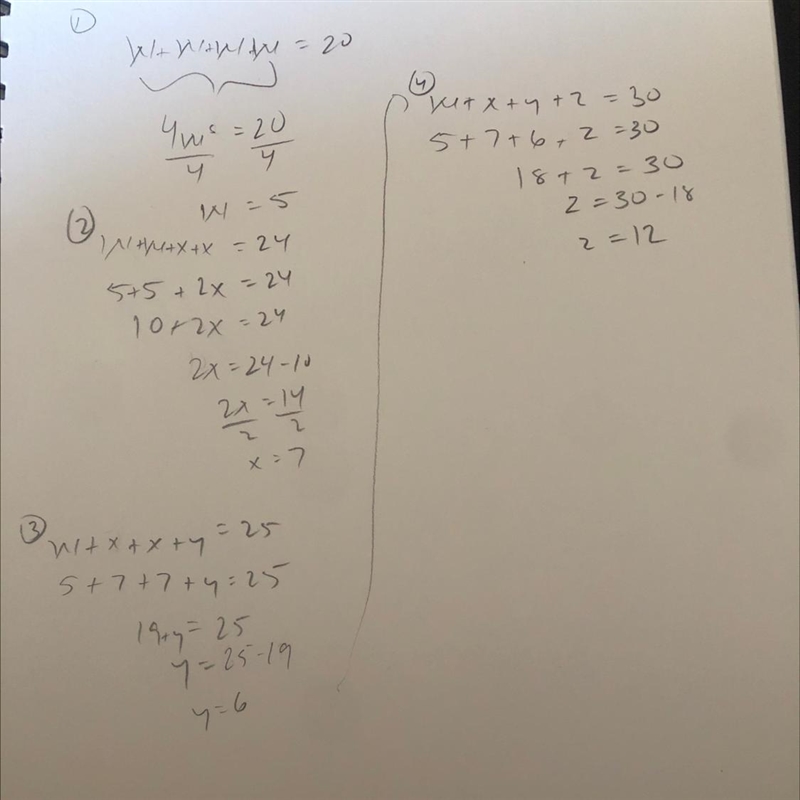 ①
w+w+w+w = 20
4w = 20
4 4
w = 5
②
w+w+x+x = 24
5+5 + 2x = 24
10+2x = 24
2x = 24-10
2x = 14
2 2
x = 7
③
w+x+x+y = 25
5+7+7+y = 25
19+y = 25
y = 25-19
y = 6
④
w+x+y+z = 30
5+7+6+z = 30
18+z = 30
z = 30-18
z = 12